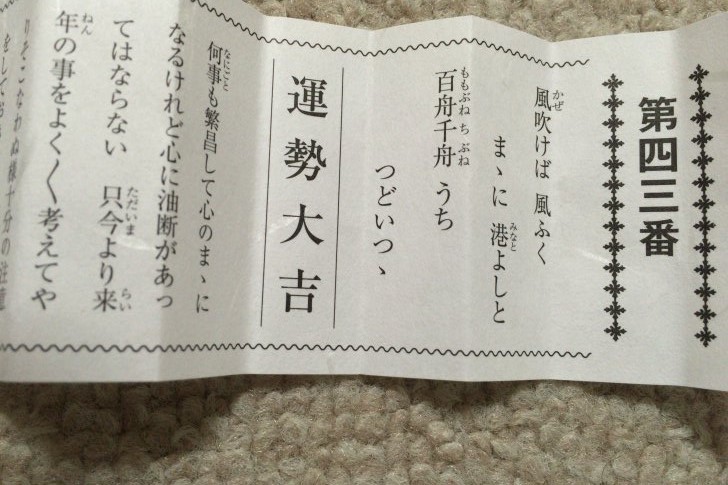 第四三番
風吹けば 風ふく
まゝに 港よしと
百舟千舟 うち
つどいつゝ
運勢大吉
何事も繁昌して心のまゝに
なるけれど心に油断があっ
てはならない 只今より来
年の事をよく〳〵考えてや
りそこなわぬ様十分の注意
をして